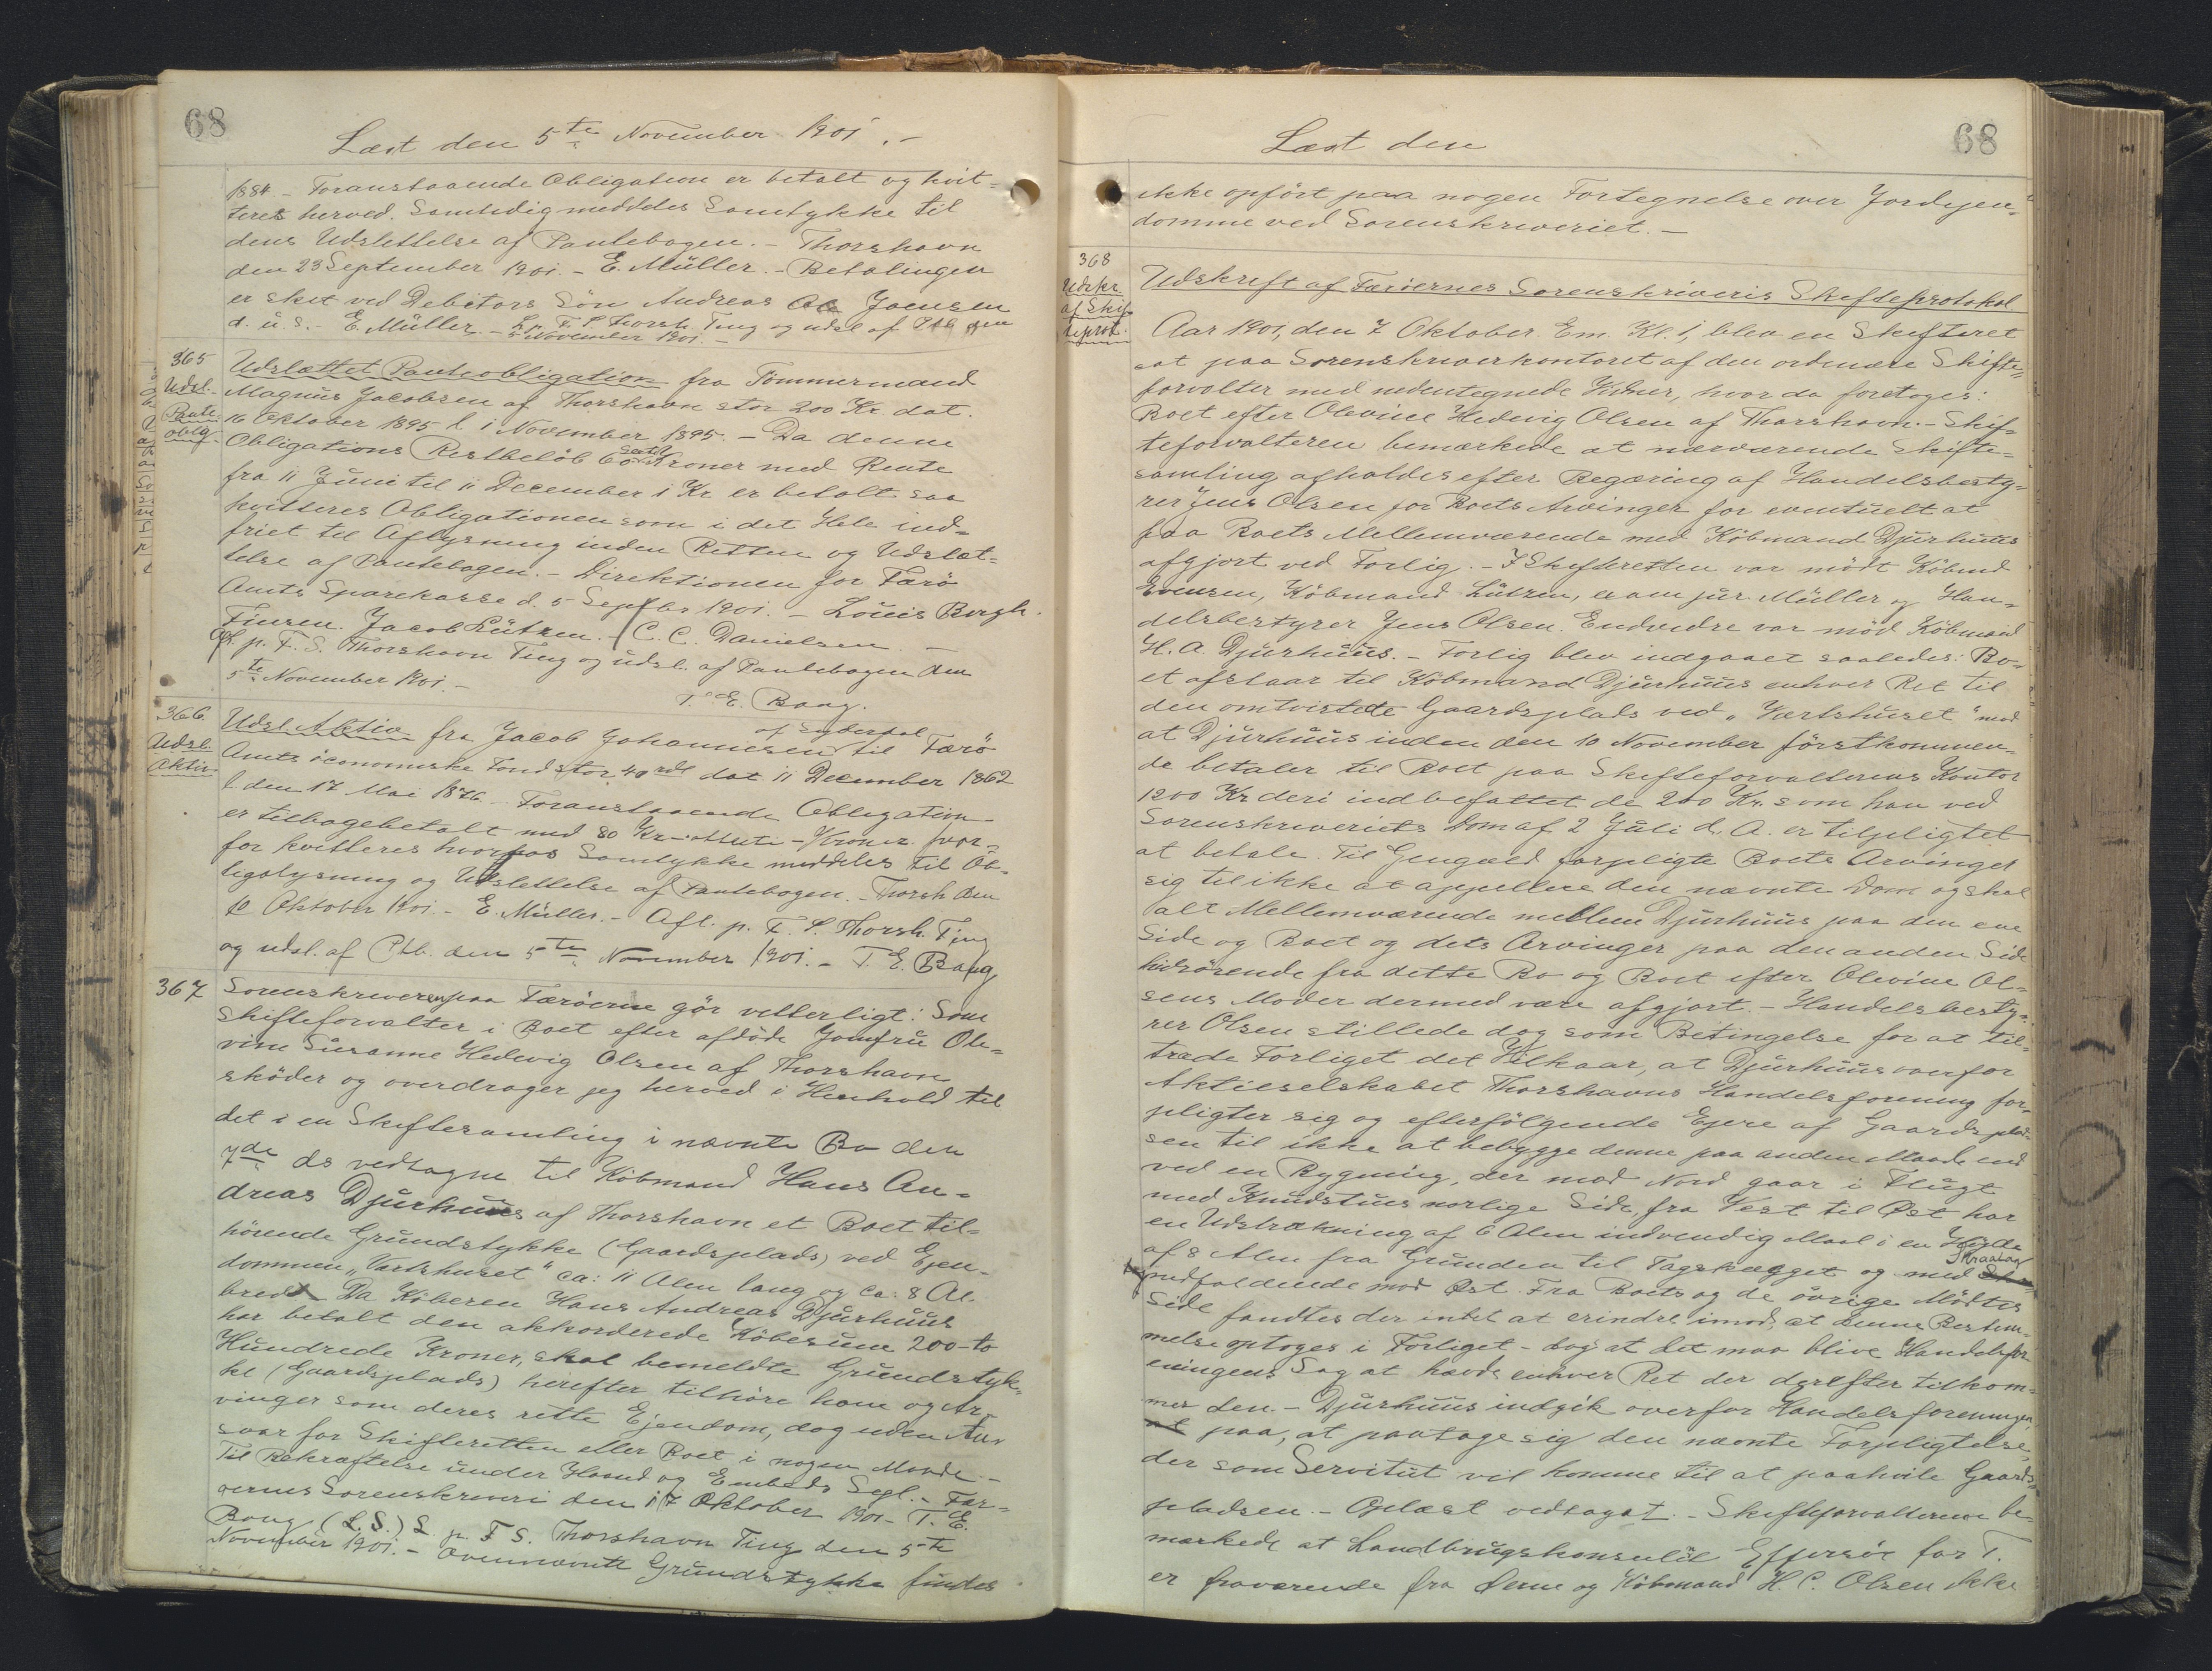 68
Læst den 5te November 1901.-
1884 - Foranstaaende Obligation er betalt og kvit=
teres herved. Samtidig meddeles Samtykke til
dens Udslettelse af Pantebogen. - Thorshavn
den 23 September 1901. - E. Müller. - Betalingen
er sket ved Debitors Søn Andreas Joensen
d. u. s. - E. Müller. - L. p. F. S. Thorsh. Ting og udsl. af Ptb. den
5 November 1901. -
365
Udsl.
Pante
oblig.
Udslættet Panteobligation fra Tömmermand
Magnus Jacobsen af Thorshavn stor 200 Kr. dat.
16 Oktober 1895 l. 1 November 1895. - Da denne
Obligations Restbeløb 60 Kroner med Rente
fra 11 Juni til 11 December i Kr. er betalt saa
kvitteres Obligationen som i det Hele ind=
friet til Aflysning inden Retten og Udslæt=
telse af Pantebogen. - Direktionen for Færö
Amts Sparekasse d. 5 Septbr 1901. - Louis Bergh.
Finsen. Jacob Lützen. - C. C. Danielsen. -
Afl. p. F. S. Thorshavn Ting og udsl. af Pantebogen den
5te November 1901. -
T. E. Bang.
366.
Udsl.
Aktie
Udsl. Aktie fra Jacob Johannesen af Syderdal til Færö
Amts öconomiske Fond stor 40 rdl dat 11 December 1862
l. den 17 Mai 1876. Foranstaaende Obligation
er tilbagebetalt med 80 Kr - otteti - Kroner hvor=
for kvitteres hvorhos Samtykke meddeles til Ob=
ligalysning og Udslettelse af Pantebogen. - Thorsh den
Oktober 1901. - E. Müller. - Afl. p. F. S. Thorsh. Ting
og udsl. af Ptb. den 5te November 1901. - T. E. Bang
367
Sorenskriveren paa Færöerne gör vitterligt: Som
Skifteforvalter i Boet efter afdöde Jomfru Ole=
vine Susanne Hedevig Olsen af Thorshavn
sköder og overdrager jeg herved i Henhold til
det i en Skiftesamling i nævnte Bo den
7de ds vedtagne til Köbmand Hans An=
dreas Djurhuus af Thorshavn et Boet til=
hörende Grundstykke (Gaardsplads) ved Ejen=
dommen „Værtshuset" ca: 11 Alen lang og ca: 8 Al.
bred - Da Köberen Hans Andreas Djurhuus
har betalt den akkorderede Köbesum 200 - to
Hundrede Kroner, skal bemeldte Grundstyk=
ke (Gaardsplads) herefter tilhöre ham og Ar=
vinger som deres rette Ejendom, dog uden An=
svar for Skifteretten eller Boet i nogen Maade. -
Til Bekræftelse under Haand og Embeds Segl. - Fær=
öernes Sorenskriveri den 17 Oktober 1901 - T. E.
Bang (L. S.) L. p. F. S. Thorshavn Ting den 5te
November 1901. - Ovennævnte Grundstykke findes
68
Læst den
ikke opfört paa nogen Fortegnelse over Jordejen=
domme ved Sorenskriveriet. -
368
Udskr.
af Skif
teprot.
Udskrift af Færöernes Sorenskriveris Skifteprotokol
Aar 1901, den 7 Oktober Em. Kl. 1, blev en Skifteret
sat paa Sorenskriverkontoret af den ordinære Skifte=
forvalter med undertegnede Vidner, hvor da foretoges:
Boet efter Olevine Hedevig Olsen af Thorshavn. - Skif=
teforvalteren bemærkede at nærværende Skifte=
samling afholdes efter Begæring af Handelsbesty=
rer Jens Olsen for Boets Arvinger for eventuelt at
faa Boets Mellemværende med Köbmand Djurhuus
afgjort ved Forlig. - I Skifteretten var mödt Köbmd
Evensen, Köbmand Lützen, exam jur. Müller og Han=
delsbestyrer Jens Olsen. Endvidre var mød Köbmand
H. A. Djurhuus. - Forlig blev indgaaet saaledes: Bo=
et afstaar til Köbmand Djurhuus enhver Ret til
den omtvistede Gaardsplads ved „Værtshuset" mod
at Djurhuus inden den 10 November förstkommen=
de betaler til Boet paa Skifteforvalterens Kontor
1200 Kr deri indbefattet de 200 Kr. som han ved
Sorenskriveriets Dom af 2 Juli d. A. er tilpligtet
at betale. Til Gengæld forpligte Boets Arvinger
sig til ikke at appellere den nævnte Dom og skal
alt Mellemværende mellem Djurhuus paa den ene
Side og Boet og dets Arvinger paa den anden Side
hidrörende fra dette Bo og Boet efter Olevine Ol=
sens Moder dermed være afgjort. - Handelsbesty=
rer Olsen stillede dog som Betingelse for at til=
træde Forliget det Vilkaar, at Djurhuus overfor
Aktieselskabet Thorshavns Handelsforening for=
pligter sig og efterfölgende Ejere af Gaardsplad=
sen til ikke at bebygge denne paa anden Maade end
ved en Bygning, der mod Nord gaar i Flugt
med Knudstuus nørlige Side, fra Vest til Øst har
en Udstrækning af 6 Alen indvendig Maal i en Höjde
af 8 Alen fra Grunden til Tagskægget og med Skraatag
nedfaldende mod Øst. Fra Boets og de övrige Mödtes
Side fandtes der intet at erindre imod, at denne Bestem=
melse optoges i Forliget - dog at det maa blive Handelsfor
eningens Sag at hævde enhver Ret der derefter tilkom=
mer den. - Djurhuus indgik overfor Handelsforeningen
paa, at paatage sig den nævnte Forpligtelse,
der som Servitut vil komme til at paahvile Gaards=
pladsen. - Oplæst vedtaget. - Skifteforvalteren be=
mærkede at Landbrugskonsulent Effersöe for T.
er fraværende fra Øerne og Köbmand H. C. Olsen ikke